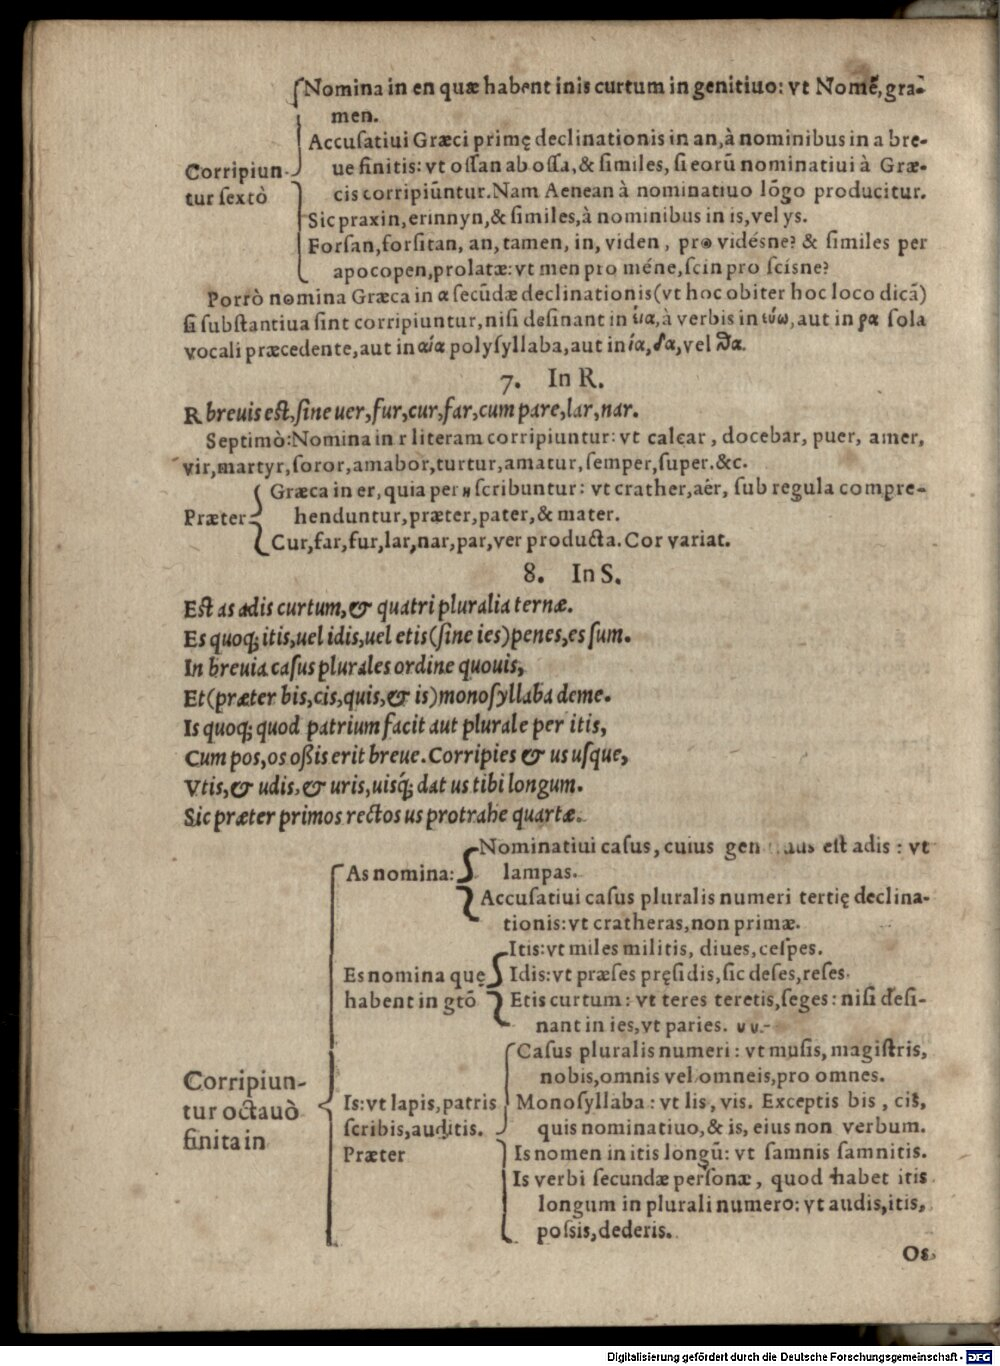 Nomina in en quæ habent inis curtum in genitiuo: vt Nomẽ, gra-
men.
Accuſatiui Græci primę declinationis in an, à nominibus in a bre-
ue finitis: vt oſſan ab oſſa, & ſimiles, ſi eorũ nominatiui à Græ-
Corripiun-
cis corripiũntur. Nam Aenean à nominatiuo lõgo producitur.
tur ſextò
Sic praxin, erinnyn, & ſimiles, à nominibus in is, vel ys.
Forſan, forſitan, an, tamen, in, viden, pro vidésne? & ſimiles per
apocopen, prolatæ: vt men pro méne, ſcin pro ſciſne?
Porrò nomina Græca in α ſecũdæ declinationis (vt hoc obiter hoc loco dicã)
ſi ſubſtantiua ſint corripiuntur, niſi deſinant in à verbis in aut in ρα ſola
vocali præcedente, aut in αία polyſyllaba, aut in ία, δα, vel θα.
7. In R.
R breuis eſt, ſine uer, fur, cur, far, cum pare, lar, nar.
Septimò: Nomina in r literam corripiuntur: vt calcar, docebar, puer, amer,
vir, martyr, ſoror, amabor, turtur, amatur, ſemper, ſuper. &c.
Græca in er, quia per η ſcribuntur: vt crather, aër, ſub regula compre-
Præter
henduntur, præter, pater, & mater.
Cur, far, fur, lar, nar, par, ver producta. Cor variat.
8. In S.
Eſt as adis curtum, & quatri pluralia ternæ.
Es quoq; itis, uel idis, uel etis (ſine ies) penes, es ſum.
In breuia caſus plurales ordine quouis,
Et (præter bis, cis, quis, & is) monoſyllaba deme.
Is quoq; quod patrium facit aut plurale per itis,
Cum pos, os oßis erit breue. Corripies & us uſque,
Vtis, & udis, & uris, uisq́; dat us tibi longum.
Sic præter primos rectos us protrahe quartæ.
Nominatiui caſus, cuius eſt adis: vt
As nomina:
lampas.
Accuſatiui caſus pluralis numeri tertię declina-
tionis: vt cratheras, non primæ.
Itis: vt miles militis, diues, ceſpes.
Es nomina quę
Idis: vt præſes pręſidis, ſic deſes, reſes.
habent in gtõ
Etis curtum: vt teres teretis, ſeges: niſi deſi-
nant in ies, vt paries. υ υ.-
Caſus pluralis numeri: vt muſis, magiſtris,
Corripiun-
nobis, omnis vel omneis, pro omnes.
tur octauò
Is: vt lapis, patris
Monoſyllaba: vt lis, vis. Exceptis bis, cis,
ſcribis, auditis.
quis nominatiuo, & is, eius non verbum.
finita in
Præter
Is nomen in itis longũ: vt ſamnis ſamnitis.
Is verbi ſecundæ perſonæ, quod habet itis
longum in plurali numero: vt audis, itis,
poſsis, dederis.
Os
Digitalisierung gefördert durch die Deutsche Forschungsgemeinschaft - DFG